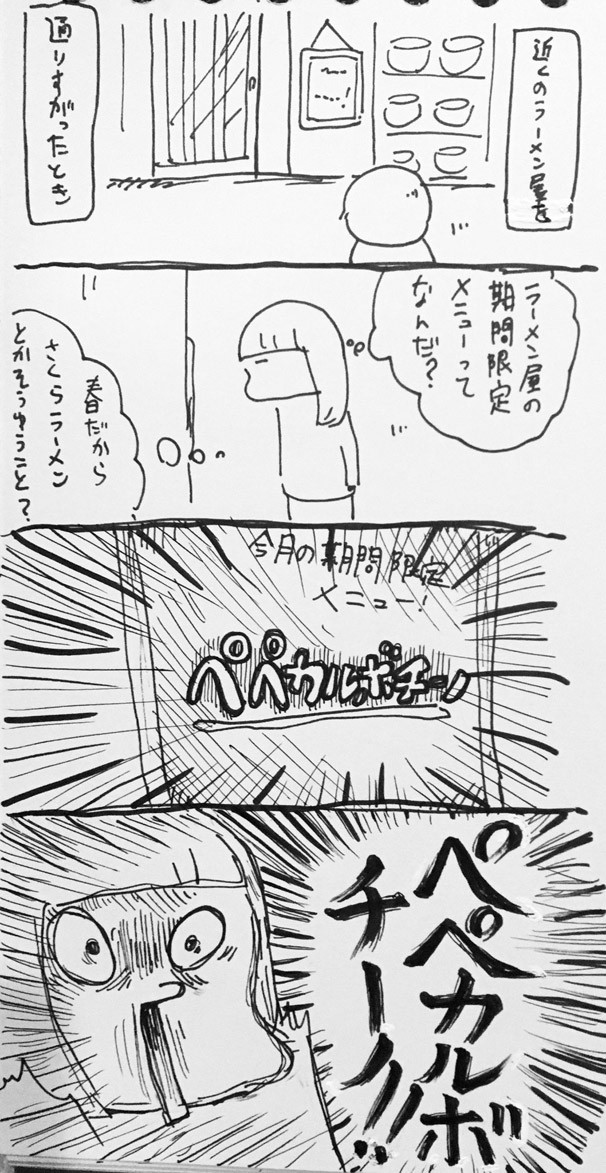 近くのラーメン屋を
通りすがったとき
ラーメン屋の
期間限定
メニューって
なんだ?
春だから
さくらラーメン
とかそうゆうこと?
今月の期間限定
メニュー!
ペペカルボチーノ
ペペカルボ
チーノ!!